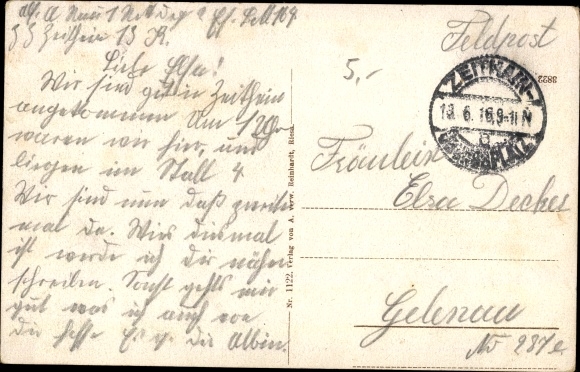 Z Zeithain 13. K.
Liebe Elsa!
Wir sind gut in Zeithain
angekommen Um 12 Uhr
waren wir hier, und
liegen im Stall 4
Wir sind nun das zweite
mal da. Wies diesmal
ist werde ich dir näher
schreiben. Sonst gehts mir
gut was ich auch von
dir hoffe Es g. die Albin.
Nr. 1122. Verlag von A. verw. Reinhardt, Riesa.
5,-
Feldpost
3822
ZEITHAIN
13. 6. 16. 9-11 N
PLATZ
Fräulein
Elsa Decker
Gelenau
No 287e